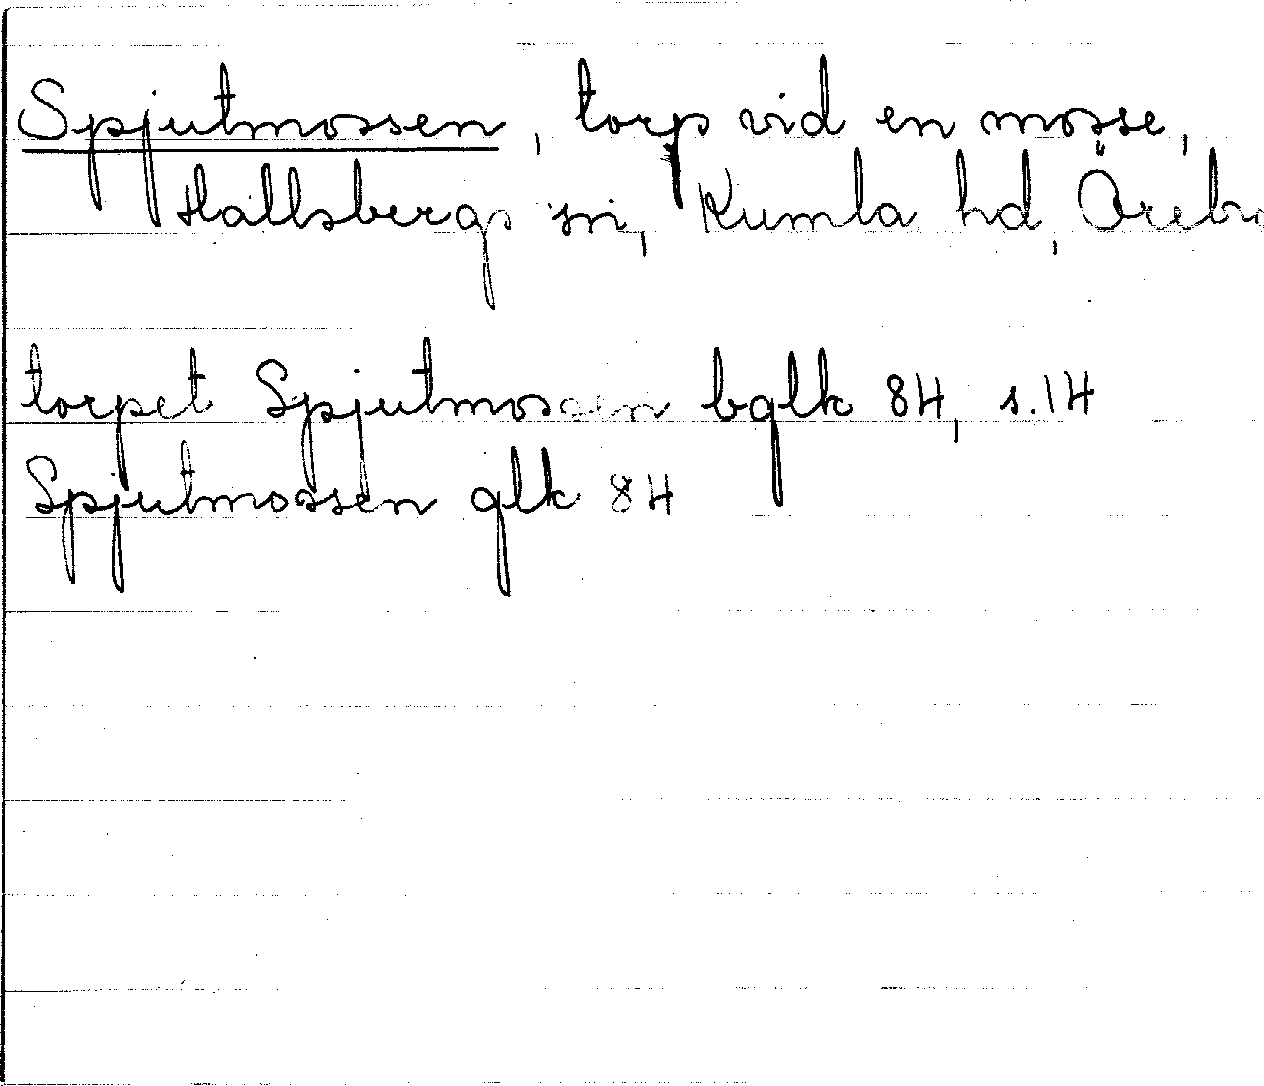 Spjutmossen, torp vid en mosse,
Hallsbergs sn, Kumla hd, Örebro
torpet Spjutmossen bglk 84, s. 14
Spjutmossen glk 84